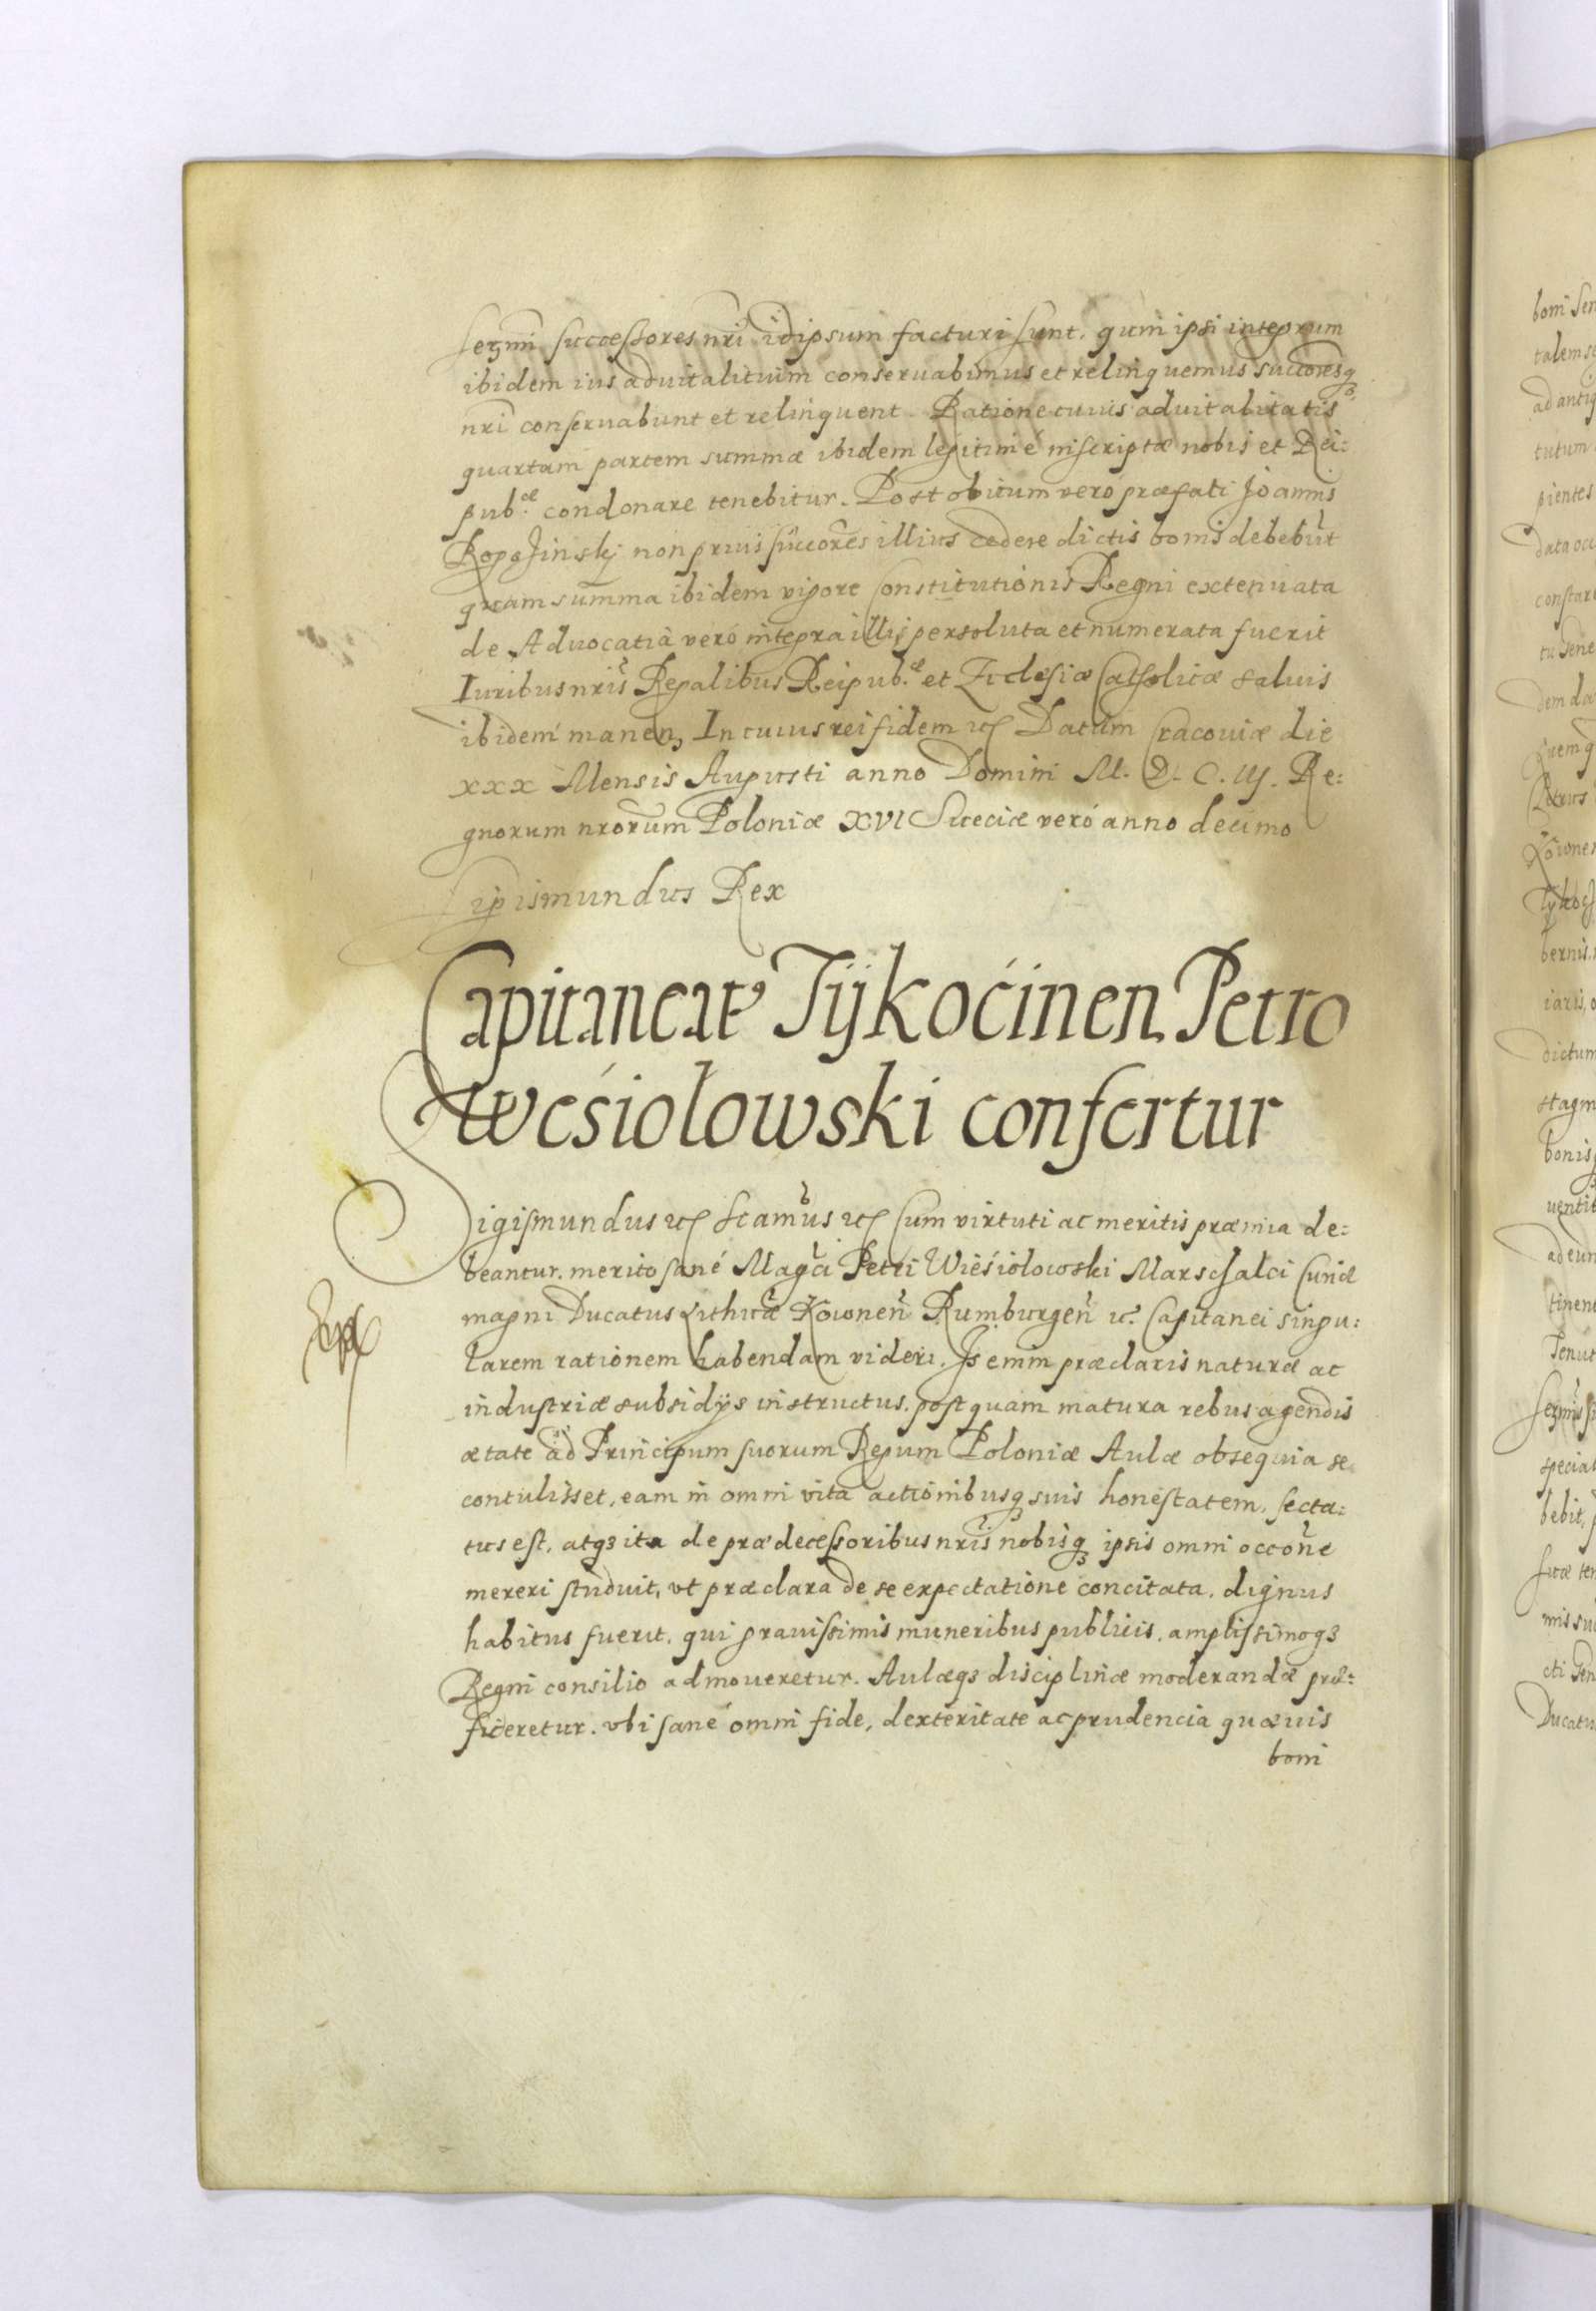 Sermi successores nri idipsum facturi sunt, quin ipsi integrum
ibidem ius aduitalitium conseruabimus et relinquemus succoresq3
nri conseruabunt et relinquent. Ratione cuius aduitalitatis
quartam partem summæ ibidem legitimé inscriptæ nobis et Rei:
pub.æ condonare tenebitur. Post obitum veró præfati Joannis
non prius succores illius cedere dictis bonis debebūt
quam summa ibidem vigore Constitutionis Regni extenuata
de Aduocatiâ veró integra illis persoluta et numerata fuerit
Iuribus nris Regalibus Reipub.æ et Ecclesiæ Catholicæ saluis
ibidem manen, In cuius rei fidem etc Datum Cracouiæ die
xxx Mensis Augusti anno Domini M. D. C. IIJ. Re:
gnorum nrorum Poloniæ XVI Sueciæ veró anno decimo
Sigismundus Rex
Capitaneat9 Tÿkoćinen Petro
Weśiołowski confertur
Sigismundus etc Scamus etc Cum virtuti ac meritis præmia de:
beantur. merito sané Magci Petri Wieśiołowski Marschalci Curiæ
magni Ducatus Lithuæ Kownen Rumburgen etc. Capitanei singu:
larem rationem habendam videri. Is enim præclaris naturæ ac
industriæ subsidÿs instructus, postquam matura rebus agendis
ætate ad Principum suorum Regum Poloniæ Aulæ obsequia se
contulisset, eam in omni vita actionibusq3 suis honestatem, secta:
tus est, atq3 ita de prædecessoribus nris nobisq3 ipsis omni occone
mereri studuit, vt præclara de se expectatione concitata, dignus
habitus fuerit, qui grauissimis muneribus publicis, amplissimoq3
Regni consilio admoueretur. Aulæq3 disciplinæ moderandæ præ:
ficeretur. vbi sané omni fide, dexteritate ac prudencia quæuis
boni